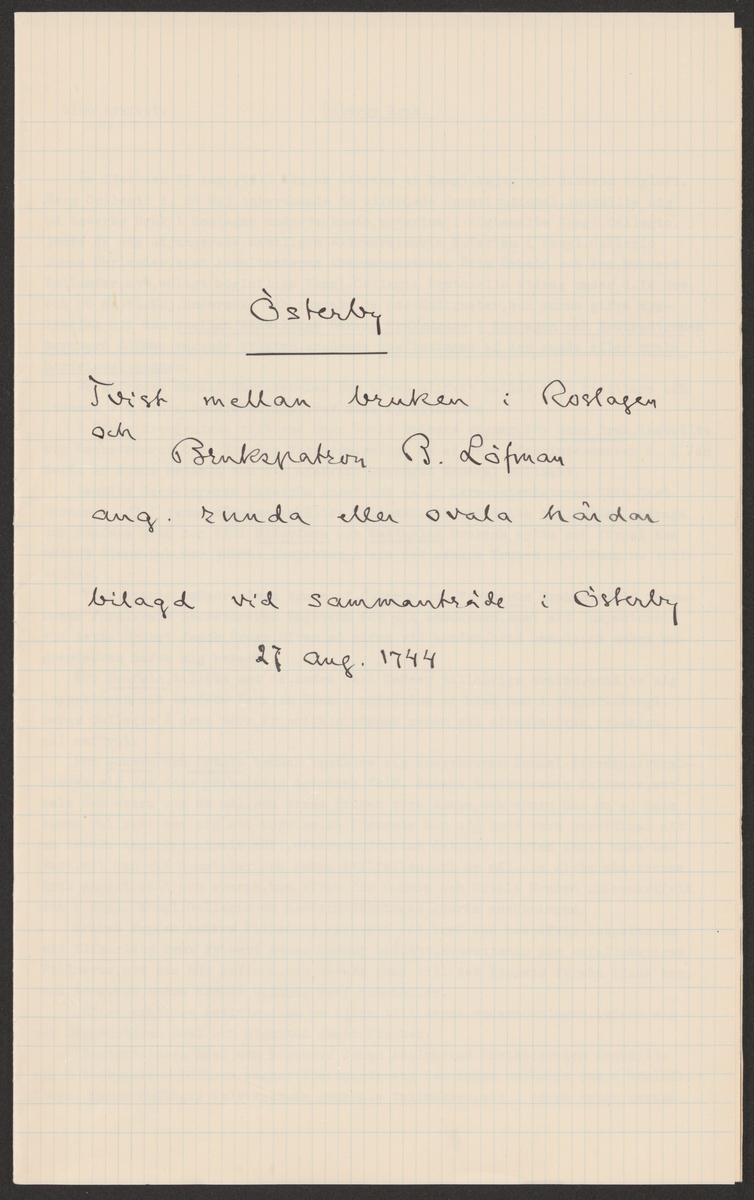 Österby
Tvist mellan bruken i Roslagen
och
Brukspatron B. Löfman
ang. runda eller ovala härdar
bilagd vid sammanträde i Österby
27 aug. 1744